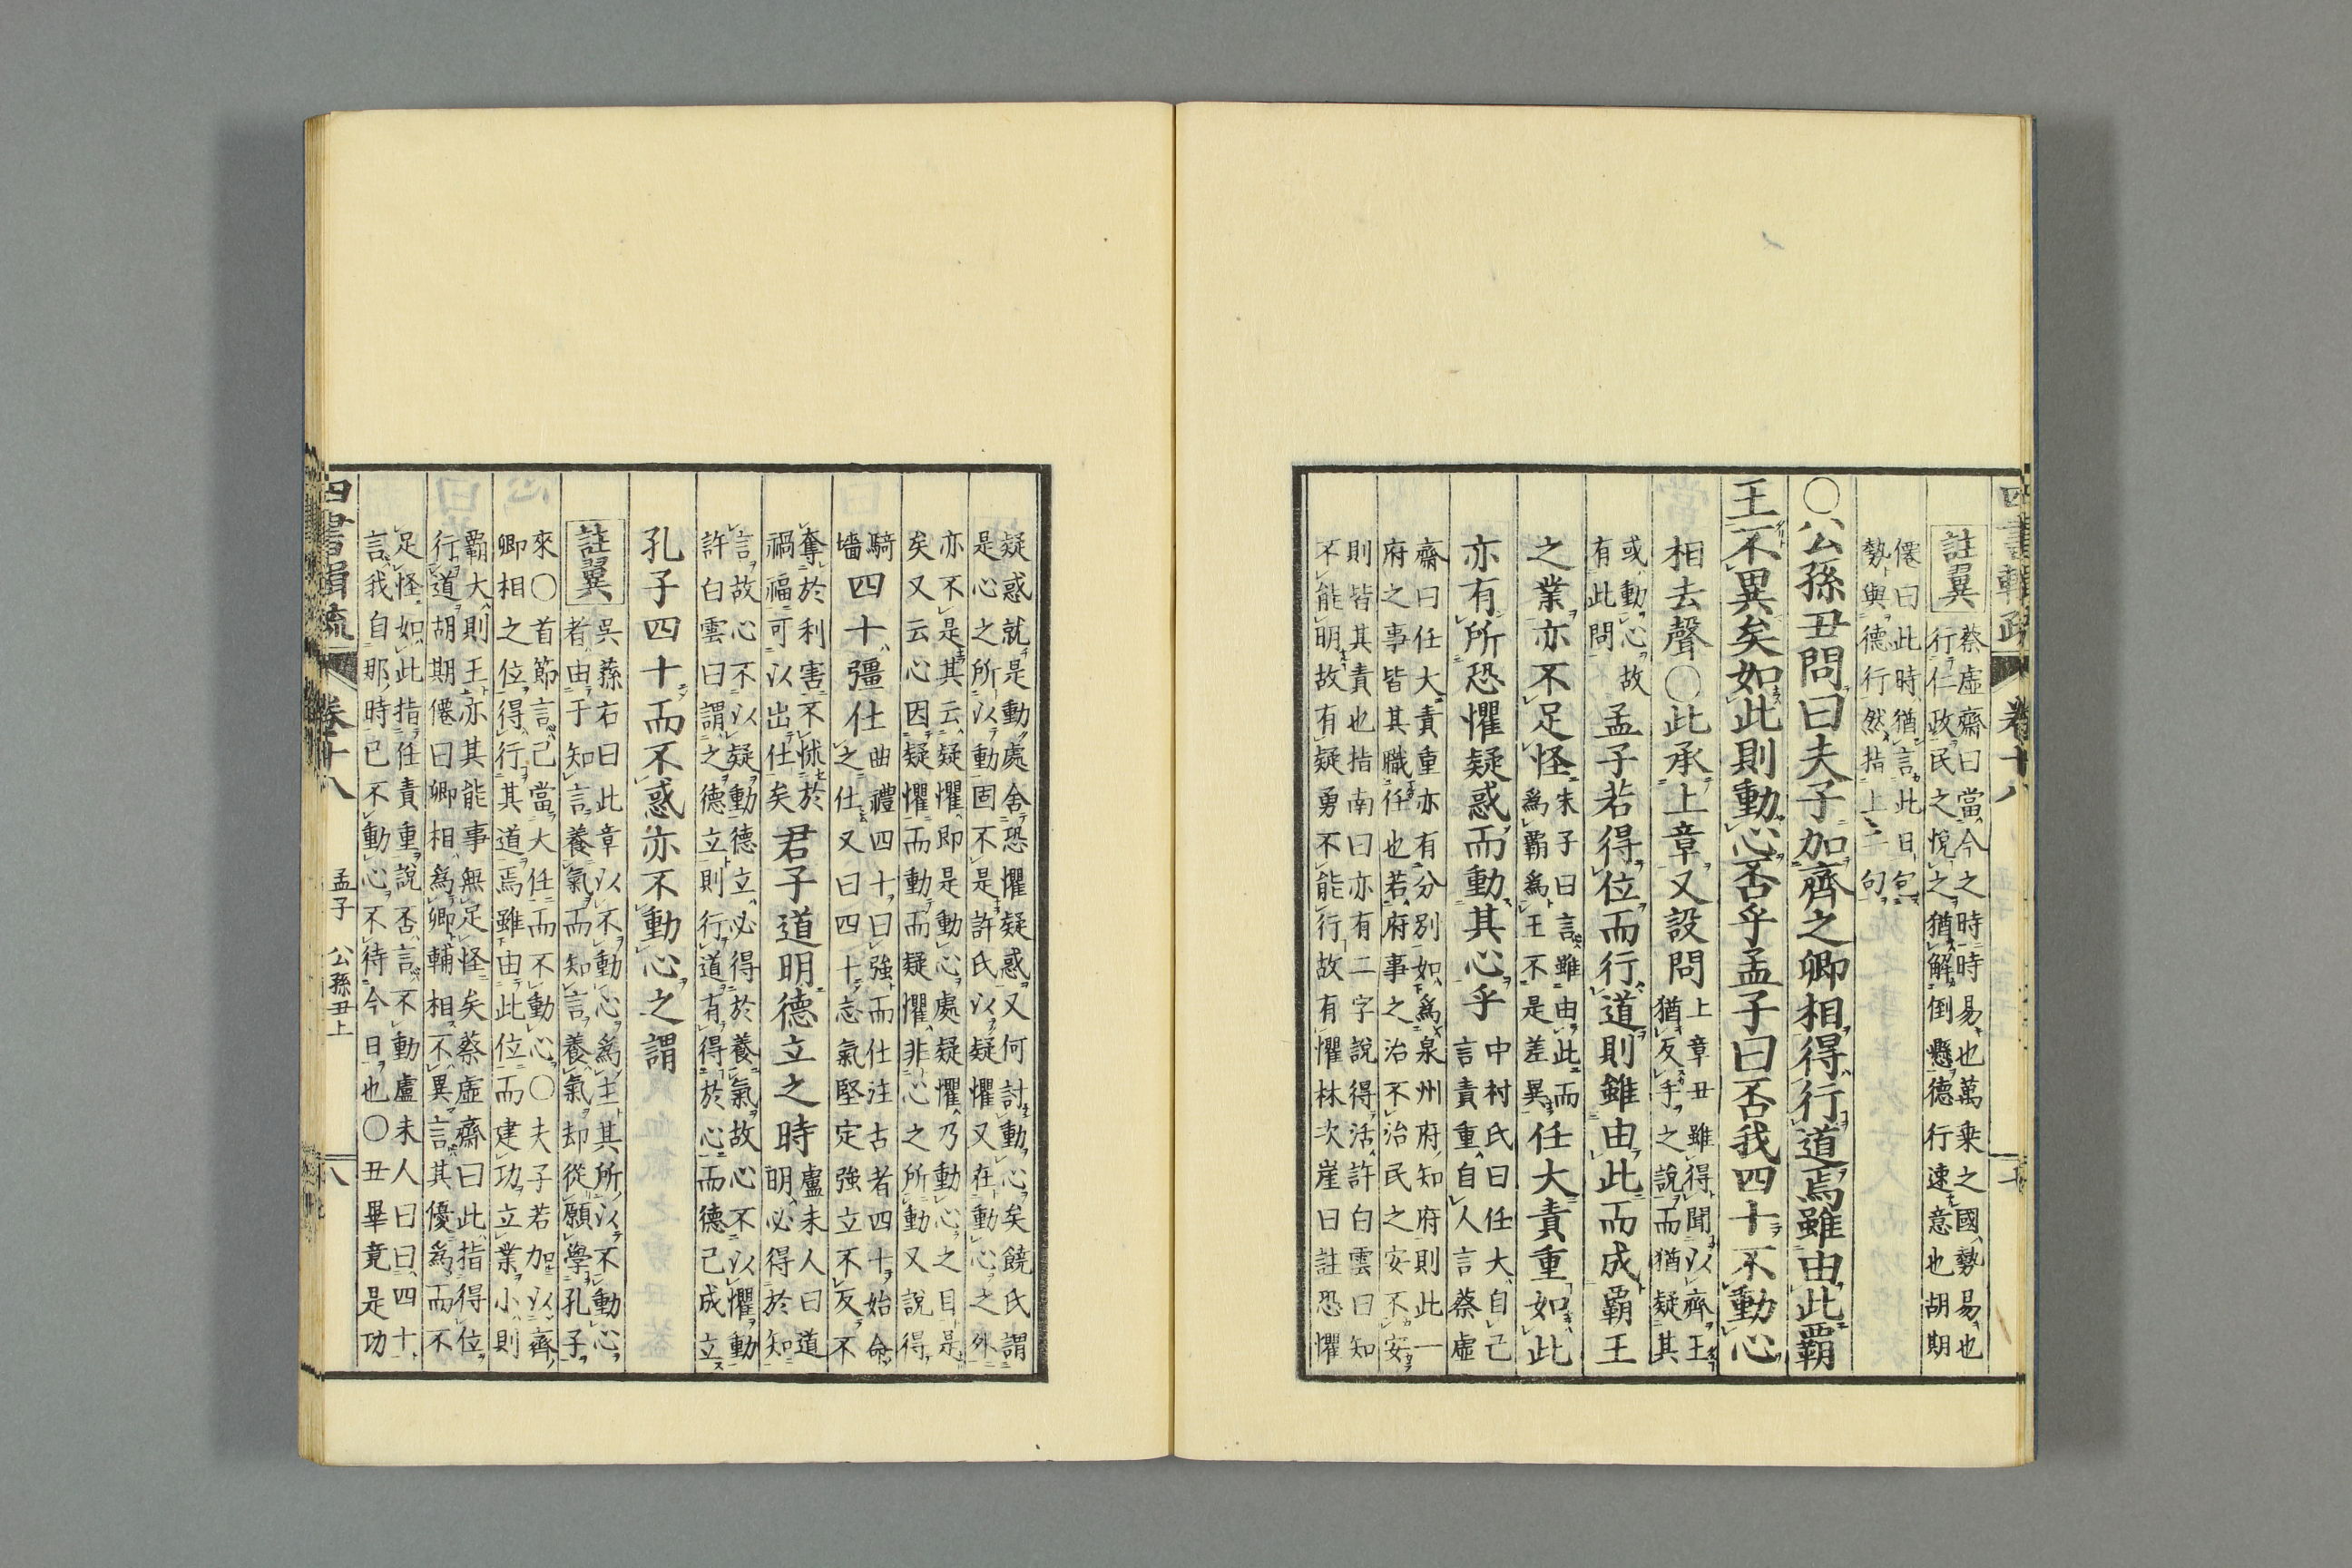 四書輯疏 卷十八
註翼
蔡虛齋曰當今之時時易也萬乗之國勢易也
行仁政民之悅之猶解倒懸德行速意也胡期
僊曰此時猶言此日句
勢與德行然指上二句
○公孫丑問曰夫子加齊之卿相得行道焉雖由此覇
王不異矣如此則動心否乎孟子曰否我四十不動心
相去聲○此承上章又設問
上章丑雖得聞以齊王
猶反手之說而猶疑其
或動心故
有此問
孟子若得位而行道則雖由此而成覇王
之業亦不足怪
朱子曰言雖由此而
爲覇爲王不是差異
任大責重如此
亦有所恐懼疑惑而動其心乎
中村氏曰任大自己
言責重自人言蔡虛
齋曰任大責重亦有分別如爲泉州府知府則此一
府之事皆其職任也若府事之治不治民之安不安
則皆其責也指南曰亦有二字說得活許白雲曰知
不能明故有疑勇不能行故有懼林次崖曰註恐懼
疑惑就是動處舍恐懼疑惑又何討動心矣饒氏謂
是心之所以動固不是許氏以疑懼又在動心之外
亦不是其云疑懼即是動心處疑懼乃動心之目是
矣又云心因疑懼而動而疑懼非心之所動又說得
騎
墻
四十彊仕
曲禮四十曰強而仕注古者四十始命
之仕又曰四十志氣堅定強立不反不
奪於利害不怵於
禍福可以出仕矣
君子道明德立之時
盧未人曰道
明必得於知
言故心不以疑動德立必得於養氣故心不以懼動
許白雲曰謂之德立則行道有得於心而德已成立
孔子四十而不惑亦不動心之謂
註翼
吳蓀右曰此章以不動心爲主其所以不動心
者由于知言養氣而知言養氣却從願學孔子
來○首節言己當大任而不動心○夫子若加以齊
卿相之位得行其道焉雖由此位而建功立業小則
覇大則王亦其能事無足怪矣蔡虛齋曰此指得位
行道胡期僊曰卿相爲卿輔相不異言其優爲而不
足怪如此指任責重說否言不動盧未人曰曰四十
言我自那時已不動心不待今日也○丑畢竟是功
四書輯疏 卷十八 孟子 公孫丑上 八